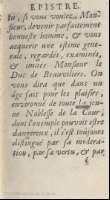 EPISTRE.
té, si vous voulez, Monsieur, devenir parfaitement
honneste homme, & vous
acquerir une estime generale, regardez, examinez,
& imitez Monsieur le
Duc de Beauvilliers. On
vous dira que dans un
âge fait pour les plaisirs,
environné de toute la jeune
Noblesse de la Cour,
dont l'exemple pouvoit estre
dangereux, il s'est toujours
distingué par sa moderation, par sa vertu, & par